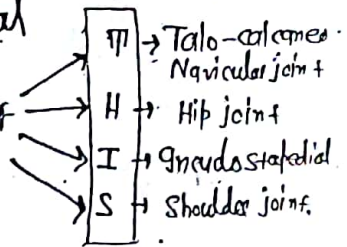 al
T → Talo-calcaneo.
Navicular joint
H → Hip joint
I → Incudostapedial
S → Shoulder joint.